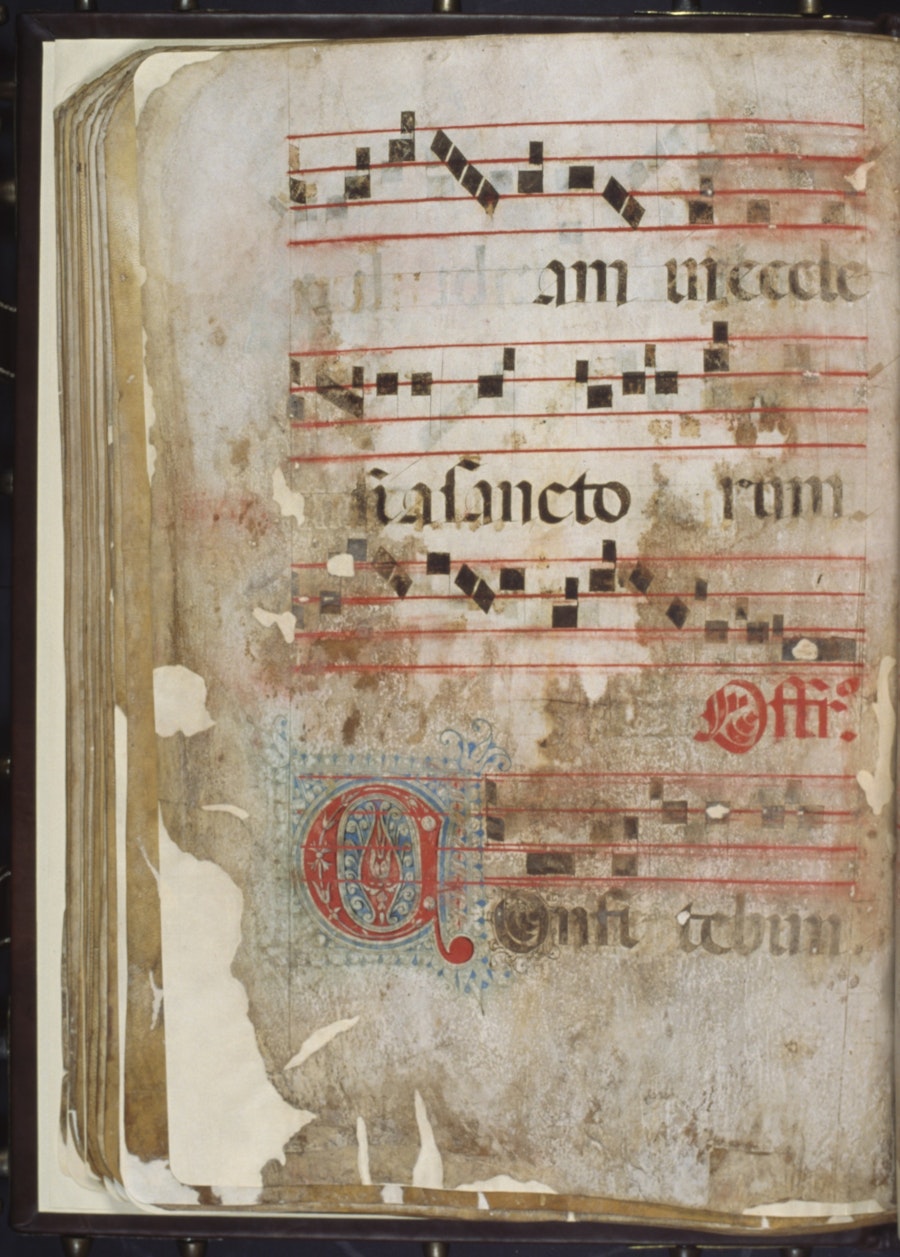 am in eccle
sia sancto rum.
Offi.
COnfi tebun